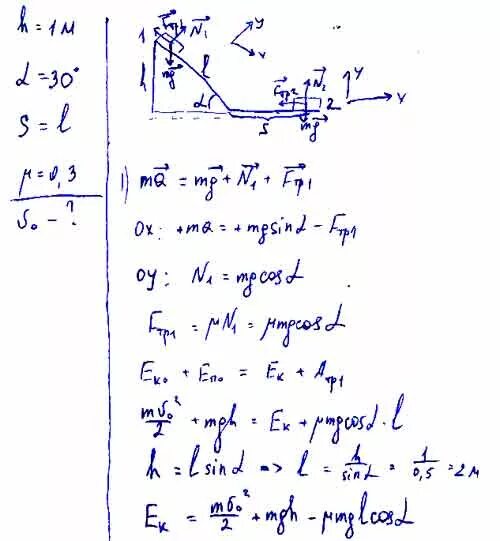 h = 1 м
α = 30°
S = l
μ = 0,3
v₀ - ?
1 F⃗тр1 N⃗₁ y
x
h mg⃗ l
α
F⃗тр2 N⃗₂ 2 y x
S mg⃗
1) ma⃗ = mg⃗ + N⃗₁ + F⃗тр1
ox: +ma = +mgsinα - Fтр1
oy: N₁ = mgcosα
Fтр1 = μN₁ = μmgcosα
Eк₀ + Eп₀ = Eк + Aтр1
mv₀²/2 + mgh = Eк + μmgcosα · l
h = l sinα => l = h/sinα = 1/0,5 = 2 м
Eк = mv₀²/2 + mgh - μmglcosα